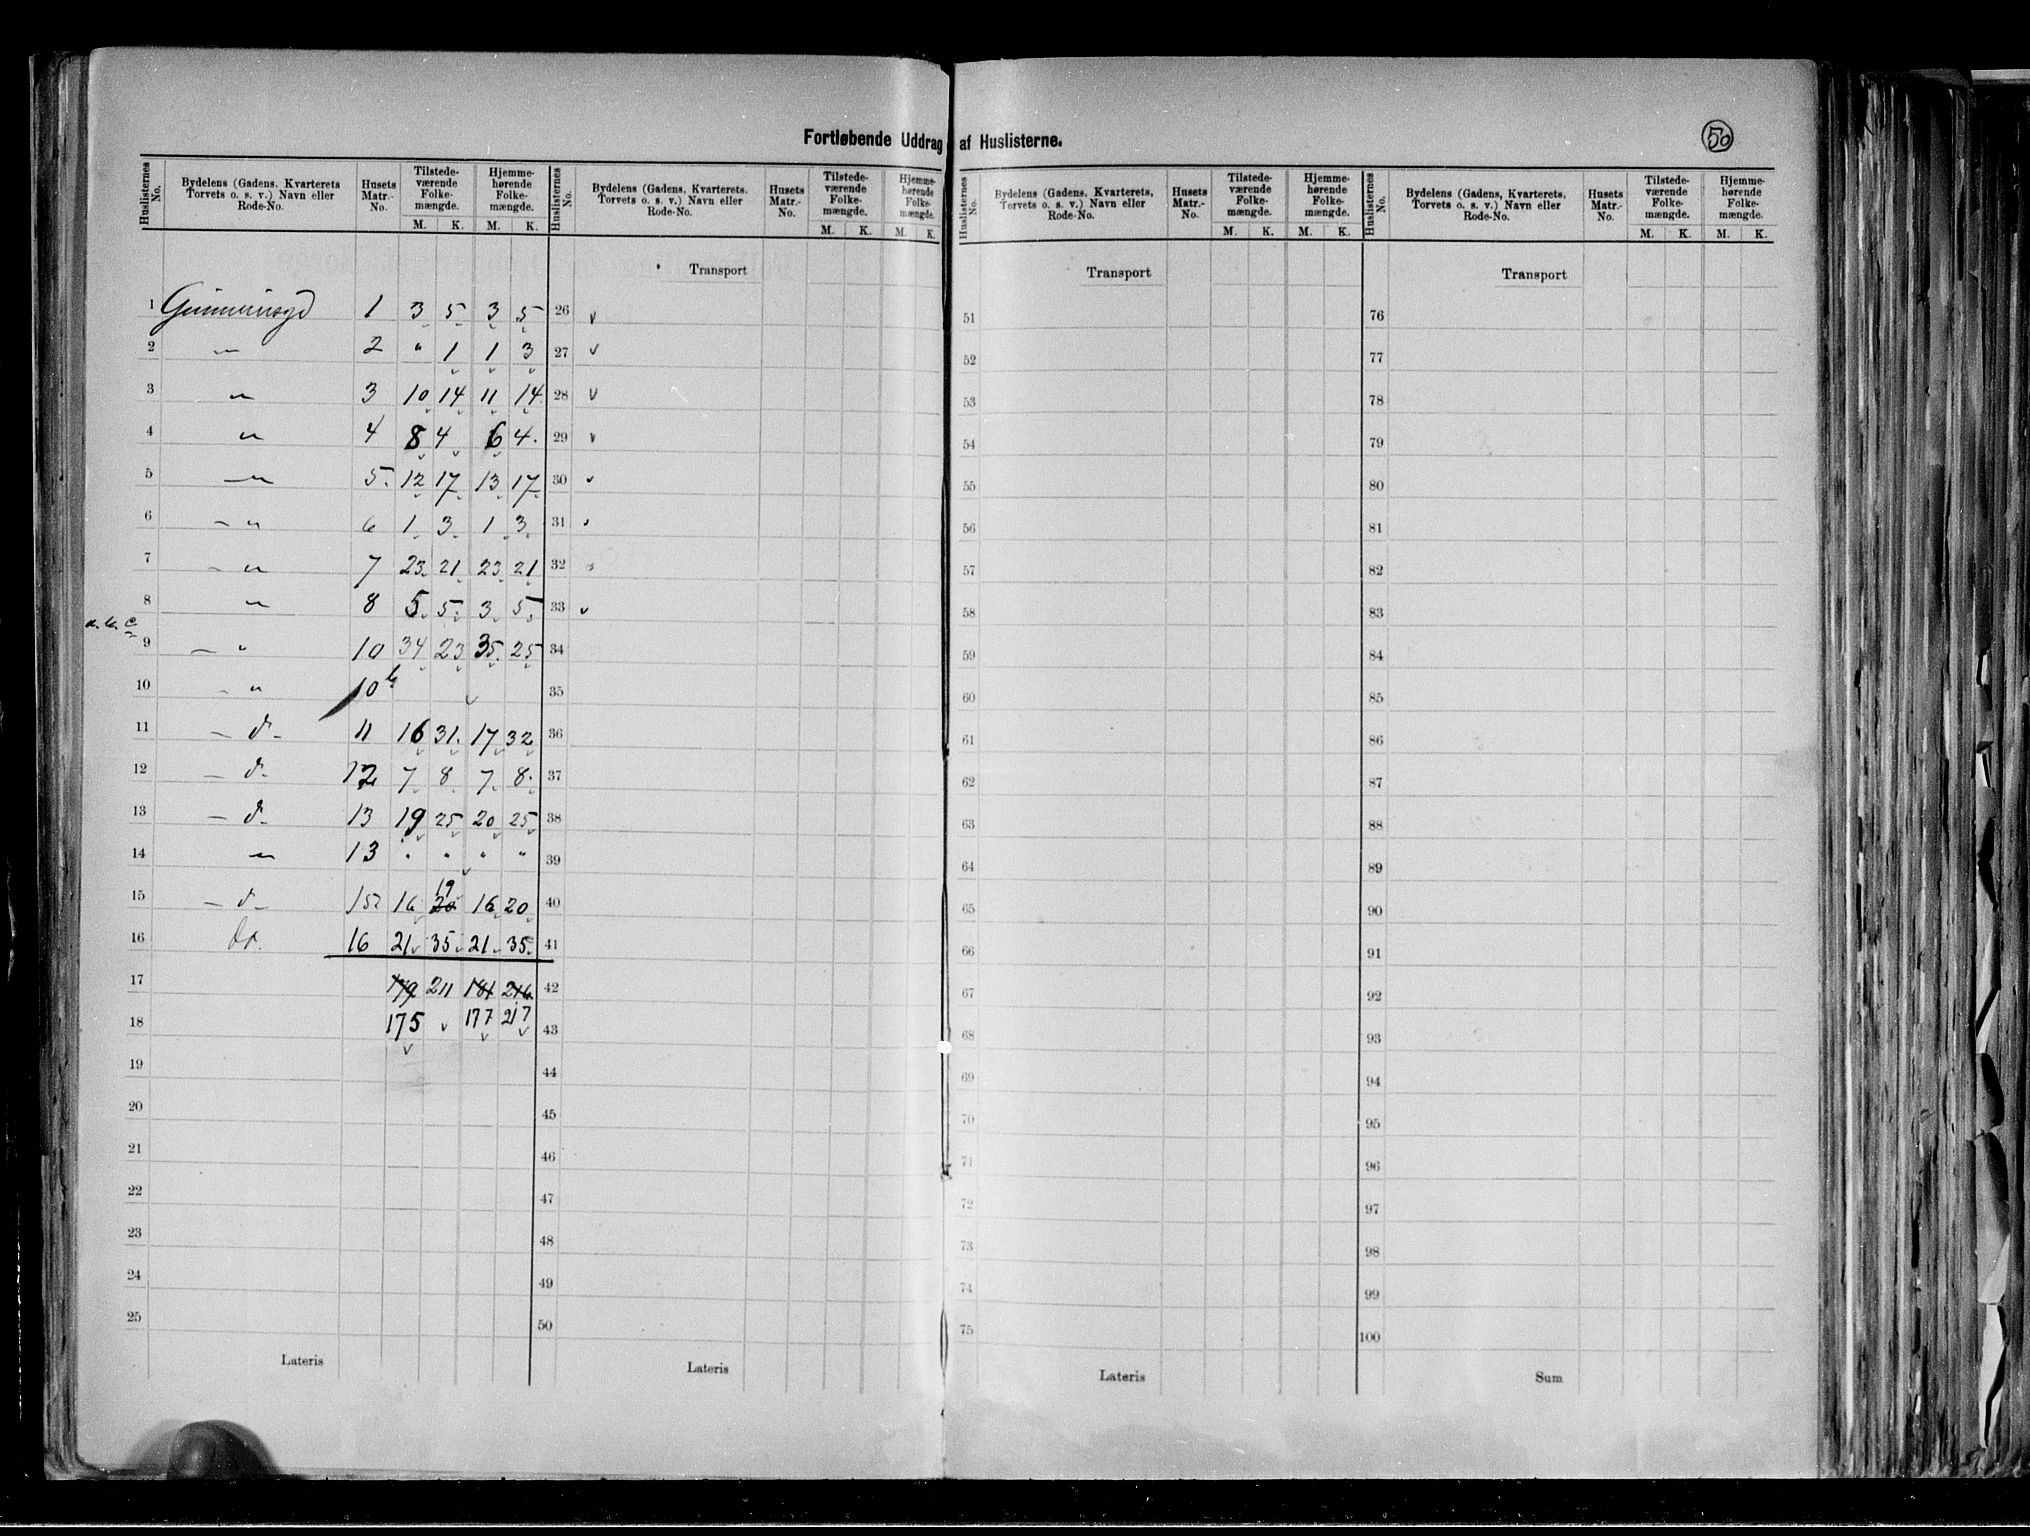 Fortløbende Uddrag af Huslisterne.
50
Huslisternes No. | Bydelens (Gadens, Kvarterets Torvets o. s. v.) Navn eller Rode-No. | Husets Matr.-No. | Tilstedeværende Folkemængde. M. K. | Hjemmehørende Folkemængde. M. K.
Huslisternes No. | Bydelens (Gadens, Kvarterets, Torvets o. s. v.) Navn eller Rode-No. | Husets Matr.-No. | Tilstedeværende Folkemængde. M. K. | Hjemmehørende Folkemængde. M. K.
Huslisternes No. | Bydelens (Gadens, Kvarterets, Torvets o. s. v.) Navn eller Rode-No. | Husets Matr.-No. | Tilstedeværende Folkemængde. M. K. | Hjemmehørende Folkemængde. M. K.
Huslisternes No. | Bydelens (Gadens, Kvarterets, Torvets o. s. v.) Navn eller Rode-No. | Husets Matr.-No. | Tilstedeværende Folkemængde. M. K. | Hjemmehørende Folkemængde. M. K.
1 1 3 5 3 5
2 — " — 2 " 1 1 3
3 " 3 10 14 11 14
4 " 4 8 4 6 4.
5 — " 5. 12 17 13 17
6 — " 6 1 3 1 3
7 — " 7 23 21 23 21
8 " 8 5 5 3 5
a. b. c.
9 — " 10 34 23 35 25
10 — " 10 b
11 — d - 11 16 31. 17 32
12 — d - 12 7 8 7 8
13 — d - 13 19 25 20 25
14 " 13 " " " "
15 — d - 15 16 20 19 16 20
16 do. 16 21 35 21 35
17 179 211 181 216
18 175 177 217
19
20
21
22
23
24
25
Lateris
Transport
26
27
28
29
30
31
32
33
34
35
36
37
38
39
40
41
42
43
44
45
46
47
48
49
50
Lateris
Transport
51
52
53
54
55
56
57
58
59
60
61
62
63
64
65
66
67
68
69
70
71
72
73
74
75
Lateris
Transport
76
77
78
79
80
81
82
83
84
85
86
87
88
89
90
91
92
93
94
95
96
97
98
99
100
Sum